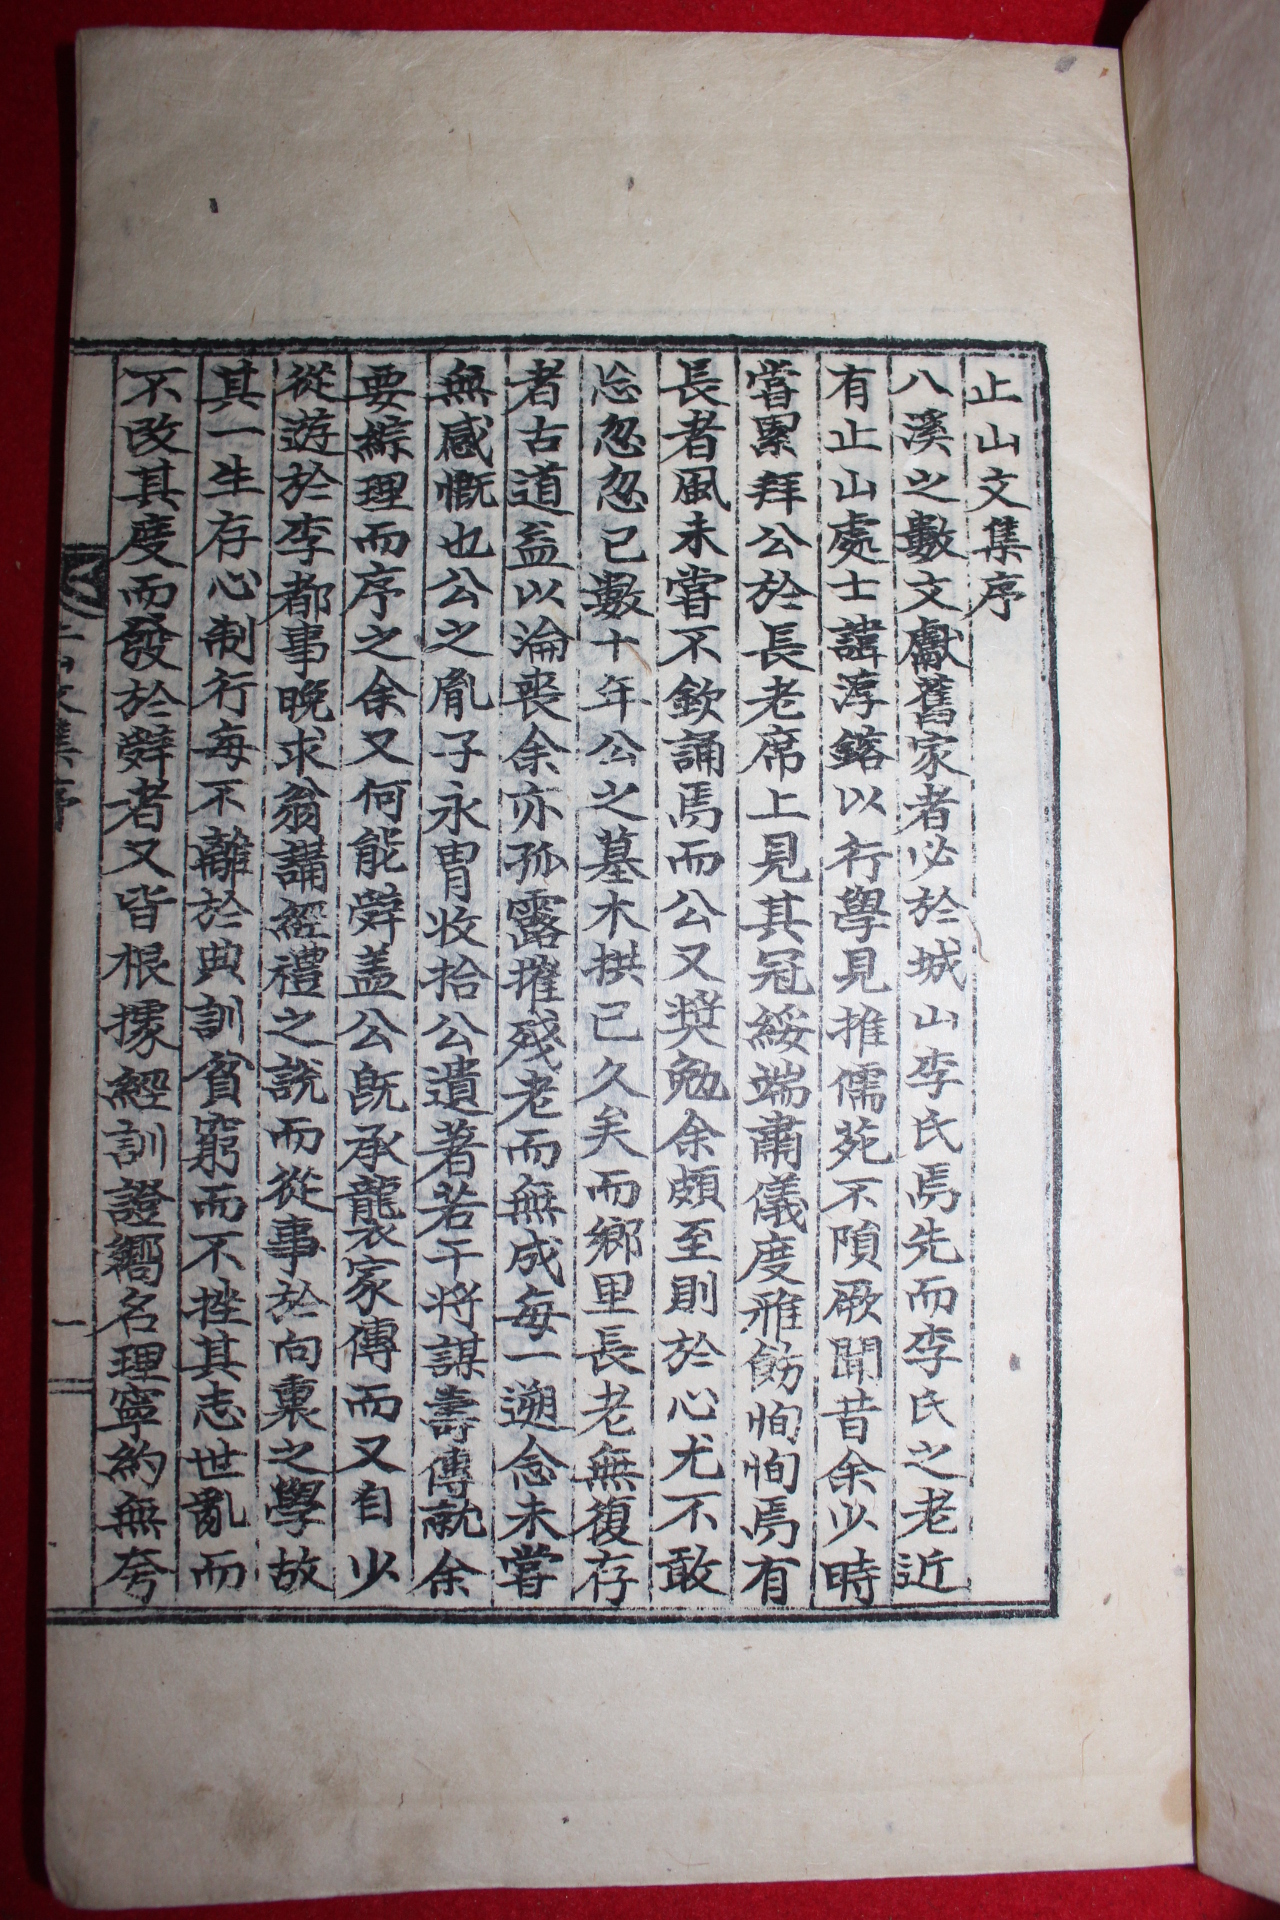 止山文集序
八溪之數文獻舊家者必於城山李氏焉先而李氏之老近
有止山處士諱淳鉻以行學見推儒苑不隕厥聞昔余少時
嘗累拜公於長老席上見其冠綏端肅儀度雅飭恂恂焉有
長者風未嘗不欽誦焉而公又奬勉余頗至則於心尤不敢
忘忽忽已數十年公之墓木拱已久矣而鄉里長老無復存
者古道益以淪喪余亦孤露摧殘老而無成每一遡念未嘗
無感慨也公之胤子永胄收拾公遺著若干將謀壽傳就余
要綜理而序之余又何能辭盖公旣承襲家傳而又自少
從遊於李都事晩求翁講經禮之說而從事於向裏之學故
其一生存心制行每不離於典訓貧窮而不挫其志世亂而
不改其度而發於辭者又皆根據經訓證嚮名理寧約無夸
止山文集序
一